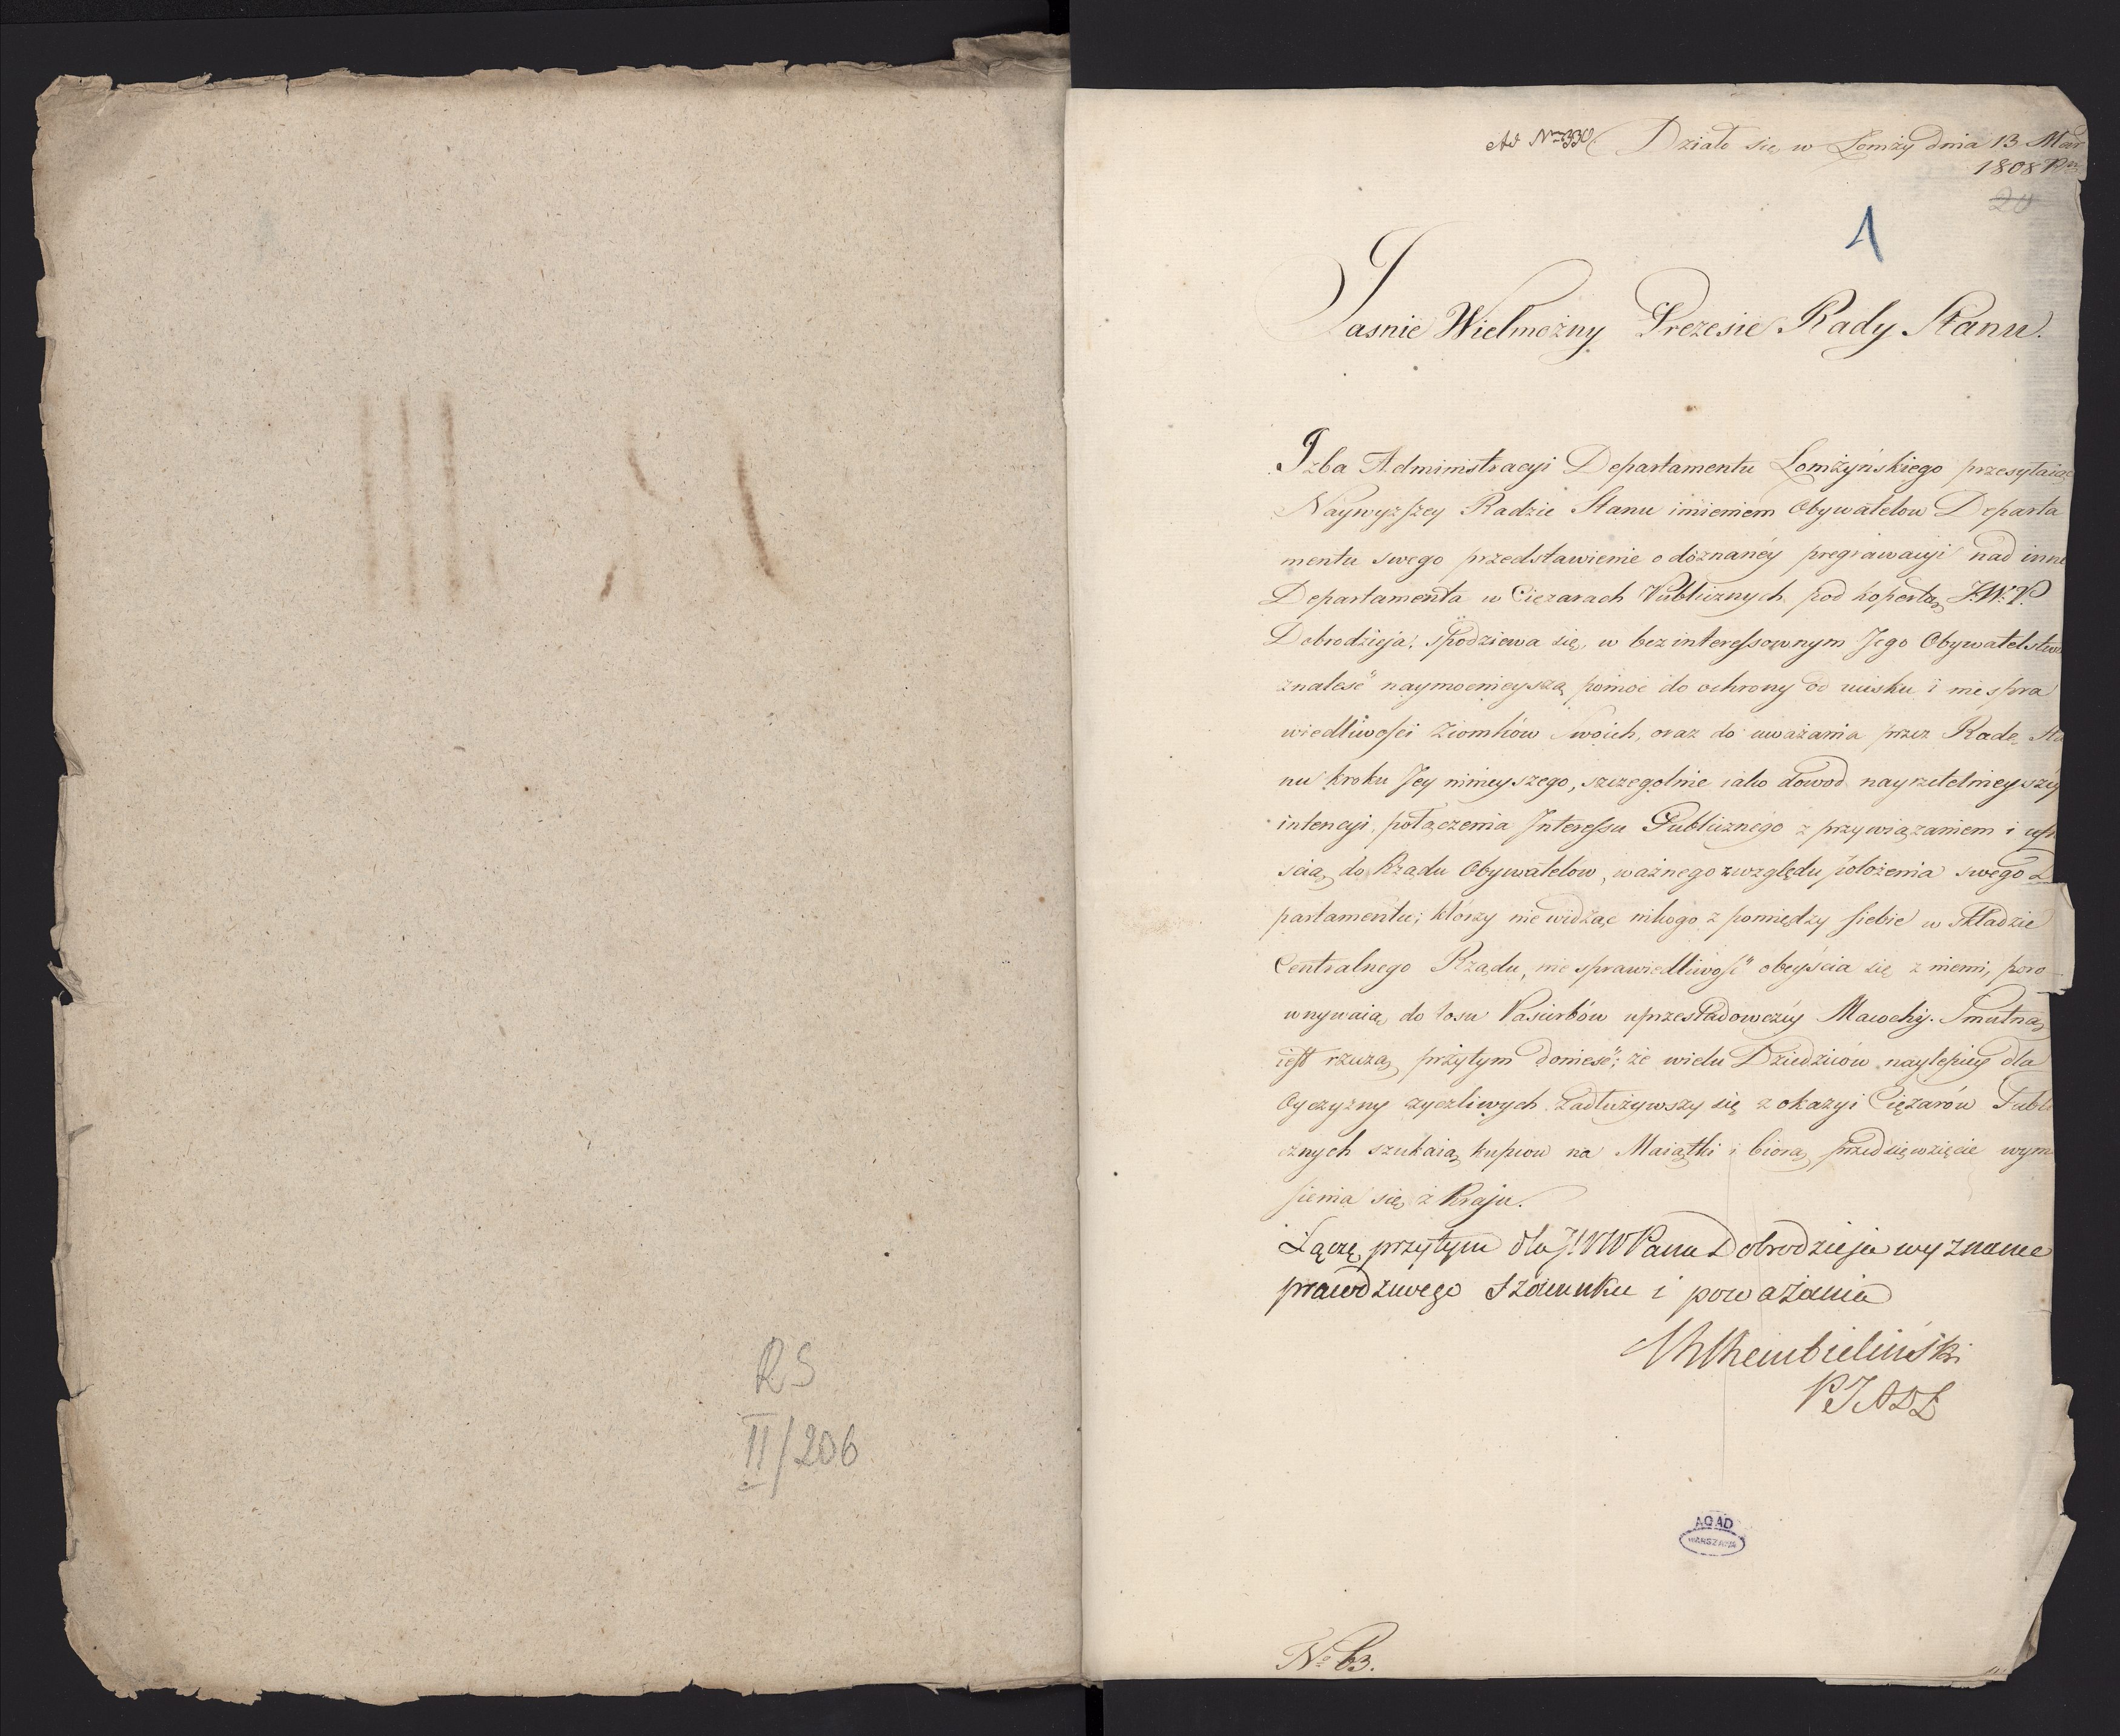 RS
II/206
Ad Nrum 330
Działo się w Łomży dnia 13 Mar
1808 R
20
1
Jasnie Wielmożny Prezesie Rady Stanu.
Izba Administracyi Departamentu Łomżyńskiego przesyłaiąc
Naywyższey Radzie Stanu imieniem Obywatelow Departa
mentu swego przedstawienie o doznanéy pregrawacyi nad inne
Departamenta w Ciężarach Publicznych pod kopertą J.W.P.
Dobrodzieja; spodziewa się, w bezinteressownym Jego Obywatelstwie
znalesć naymocnieyszą pomoc do ochrony od ucisku i niespra
wiedliwości Ziomków Swoich, oraz do uważania przez Radę Sta
nu kroku Jey ninieyszego, szczegolnie iako dowod nayrzetelnieyszéy
intencyi, połączenia Interessu Publicznego z przywiązaniem i ufno
scią do Rządu Obywatelow, ważnego zwzględu położenia swego De
partamentu; którzy nie widząc nikogo z pomiędzy siebie w składzie
Centralnego Rządu, niesprawiedliwość obeyścia się z niemi, poro
wnywaią do losu Pasierbów uprzesladowczéy Macochy. Smutną
iest rzeczą przytym donieść; że wielu Dziedziców naylepiey dla
Oyczyzny życzliwych zadłużywszy się z okazyi Ciężarów Publi
cznych szukaią kupcow na Maiątki i biorą przedsięwzięcie wynie
sienia się z Kraju.
Łączę przytym dla J. W W Pana Dobrodzieja wyznanie
prawdziwego szacunku i poważania
Rembieliński
P.I.A.D.Ł
AGAD
WARSZAWA
No 63.